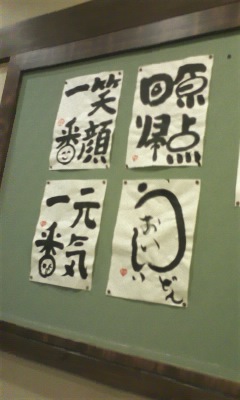 笑顔
一番
原点
回帰
元気
一番
うどん
おいしい